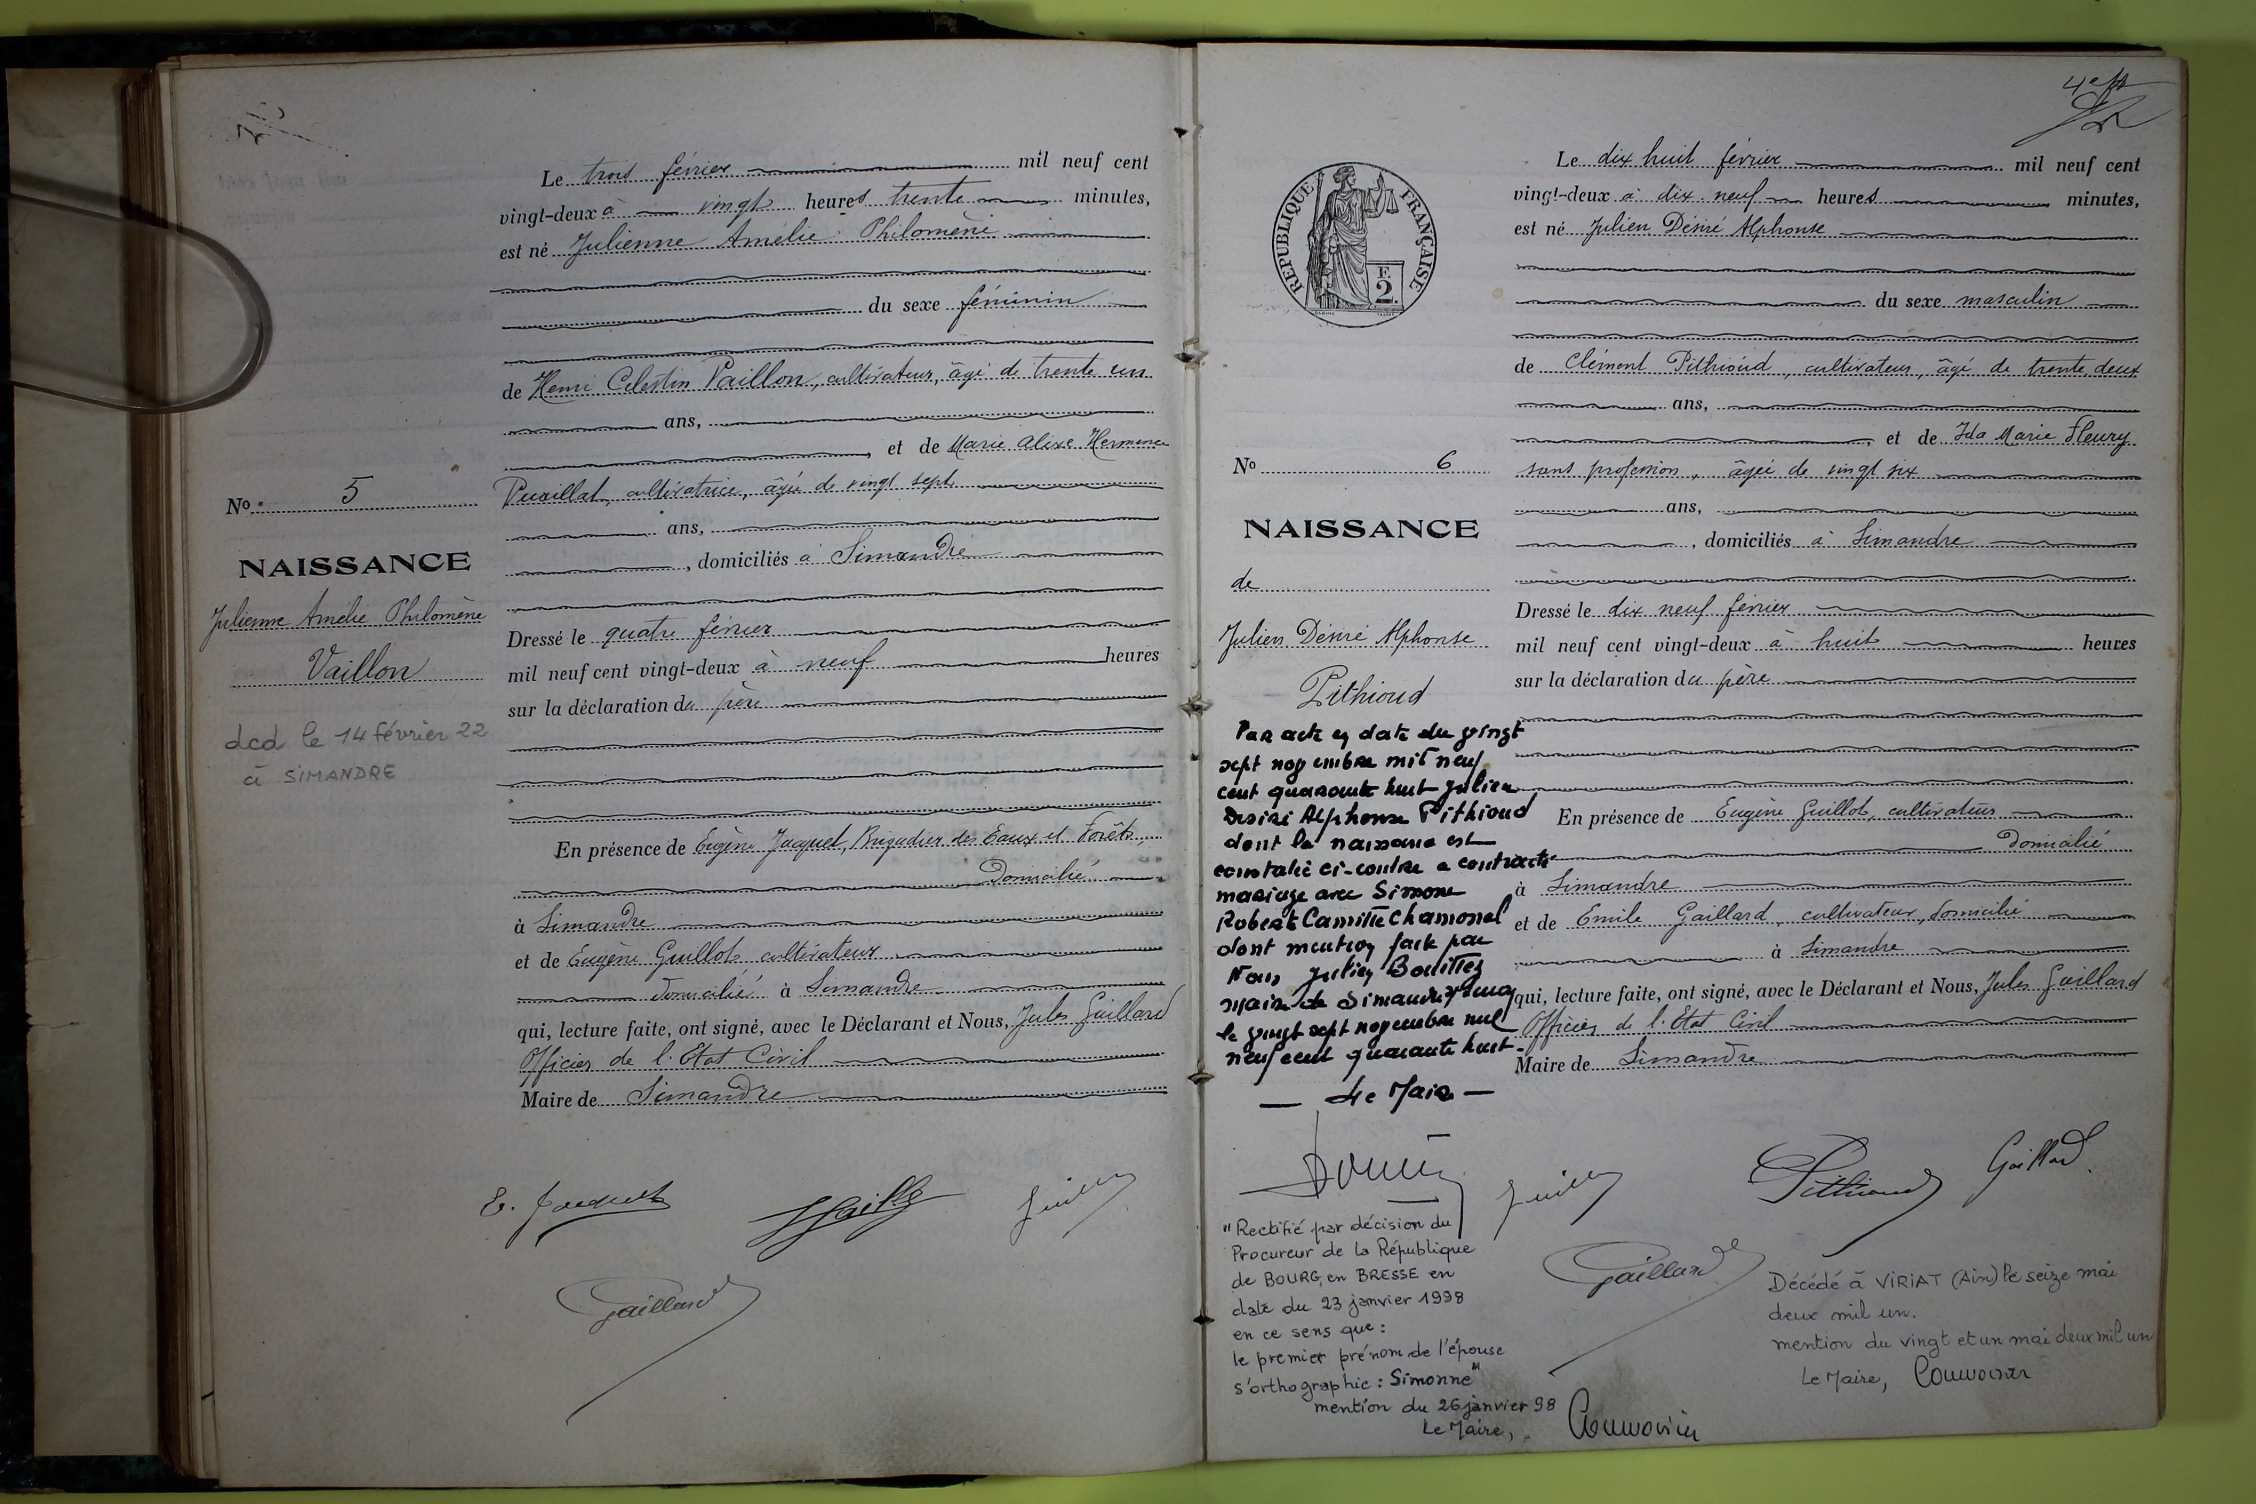 Le trois février mil neuf cent
vingt-deux à vingt heures trente minutes,
est né Julienne Amélie Philomène
du sexe féminin
de Henri Celestin Vaillon, cultivateur, âgé de trente un
ans,
et de Marie Alixe Hermance
Puvillat, cultivatrice, âgée de vingt sept
ans,
, domiciliés à Simandre
No 5
NAISSANCE
Julienne Amélie Philomène
Vaillon
dcd le 14 février 22
à SIMANDRE
Dressé le quatre février
mil neuf cent vingt-deux à neuf heures
sur la déclaration du père
En présence de Eugène Jacquet, Brigadier des Eaux et Forêts,
Domicilié
à Simandre
et de Eugène Guillot cultivateur
domicilié à Simandre
qui, lecture faite, ont signé, avec le Déclarant et Nous, Jules Gaillard
Officier de l'Etat Civil
Maire de Simandre
E. Jacquet
Gaillard
4e
RÉPUBLIQUE FRANÇAISE
F.
2.
Le dix huit février mil neuf cent
vingt-deux à dix neuf heures minutes,
est né Julien Désiré Alphonse
du sexe masculin
de Clément Pithioud, cultivateur, âgé de trente deux
ans,
et de Ida Marie Fleury
sans profession, âgée de vingt six
ans,
, domiciliés à Simandre
No 6
NAISSANCE
de
Julien Désiré Alphonse
Pithioud
Dressé le dix neuf février
mil neuf cent vingt-deux à huit heures
sur la déclaration du père
En présence de Eugène Guillot, cultivateur
Domicilié
à Simandre
et de Emile Gaillard, cultivateur, domicilié
à Simandre
qui, lecture faite, ont signé, avec le Déclarant et Nous, Jules Gaillard
Officier de l'Etat Civil
Maire de Simandre
Par acte en date du vingt
sept novembre mil neuf
cent quarante huit Julien
Désiré Alphonse Pithioud
dont la naissance est
constatée ci-contre a contracté
mariage avec Simone
Roberte Camille Chamonal
dont mention faite par
Nous Julien
Maire de Simandre
le vingt sept novembre mil
neuf cent quarante huit
Le Maire
Pithioud
Gaillard
Gaillard
"Rectifié par décision du
Procureur de la République
de BOURG en BRESSE en
date du 23 janvier 1998
en ce sens que :
le premier prénom de l'épouse
s'orthographie : Simonne"
mention du 26 janvier 98
Le Maire,
Décédé à VIRIAT (Ain) le seize mai
deux mil un.
mention du vingt et un mai deux mil un
Le Maire,